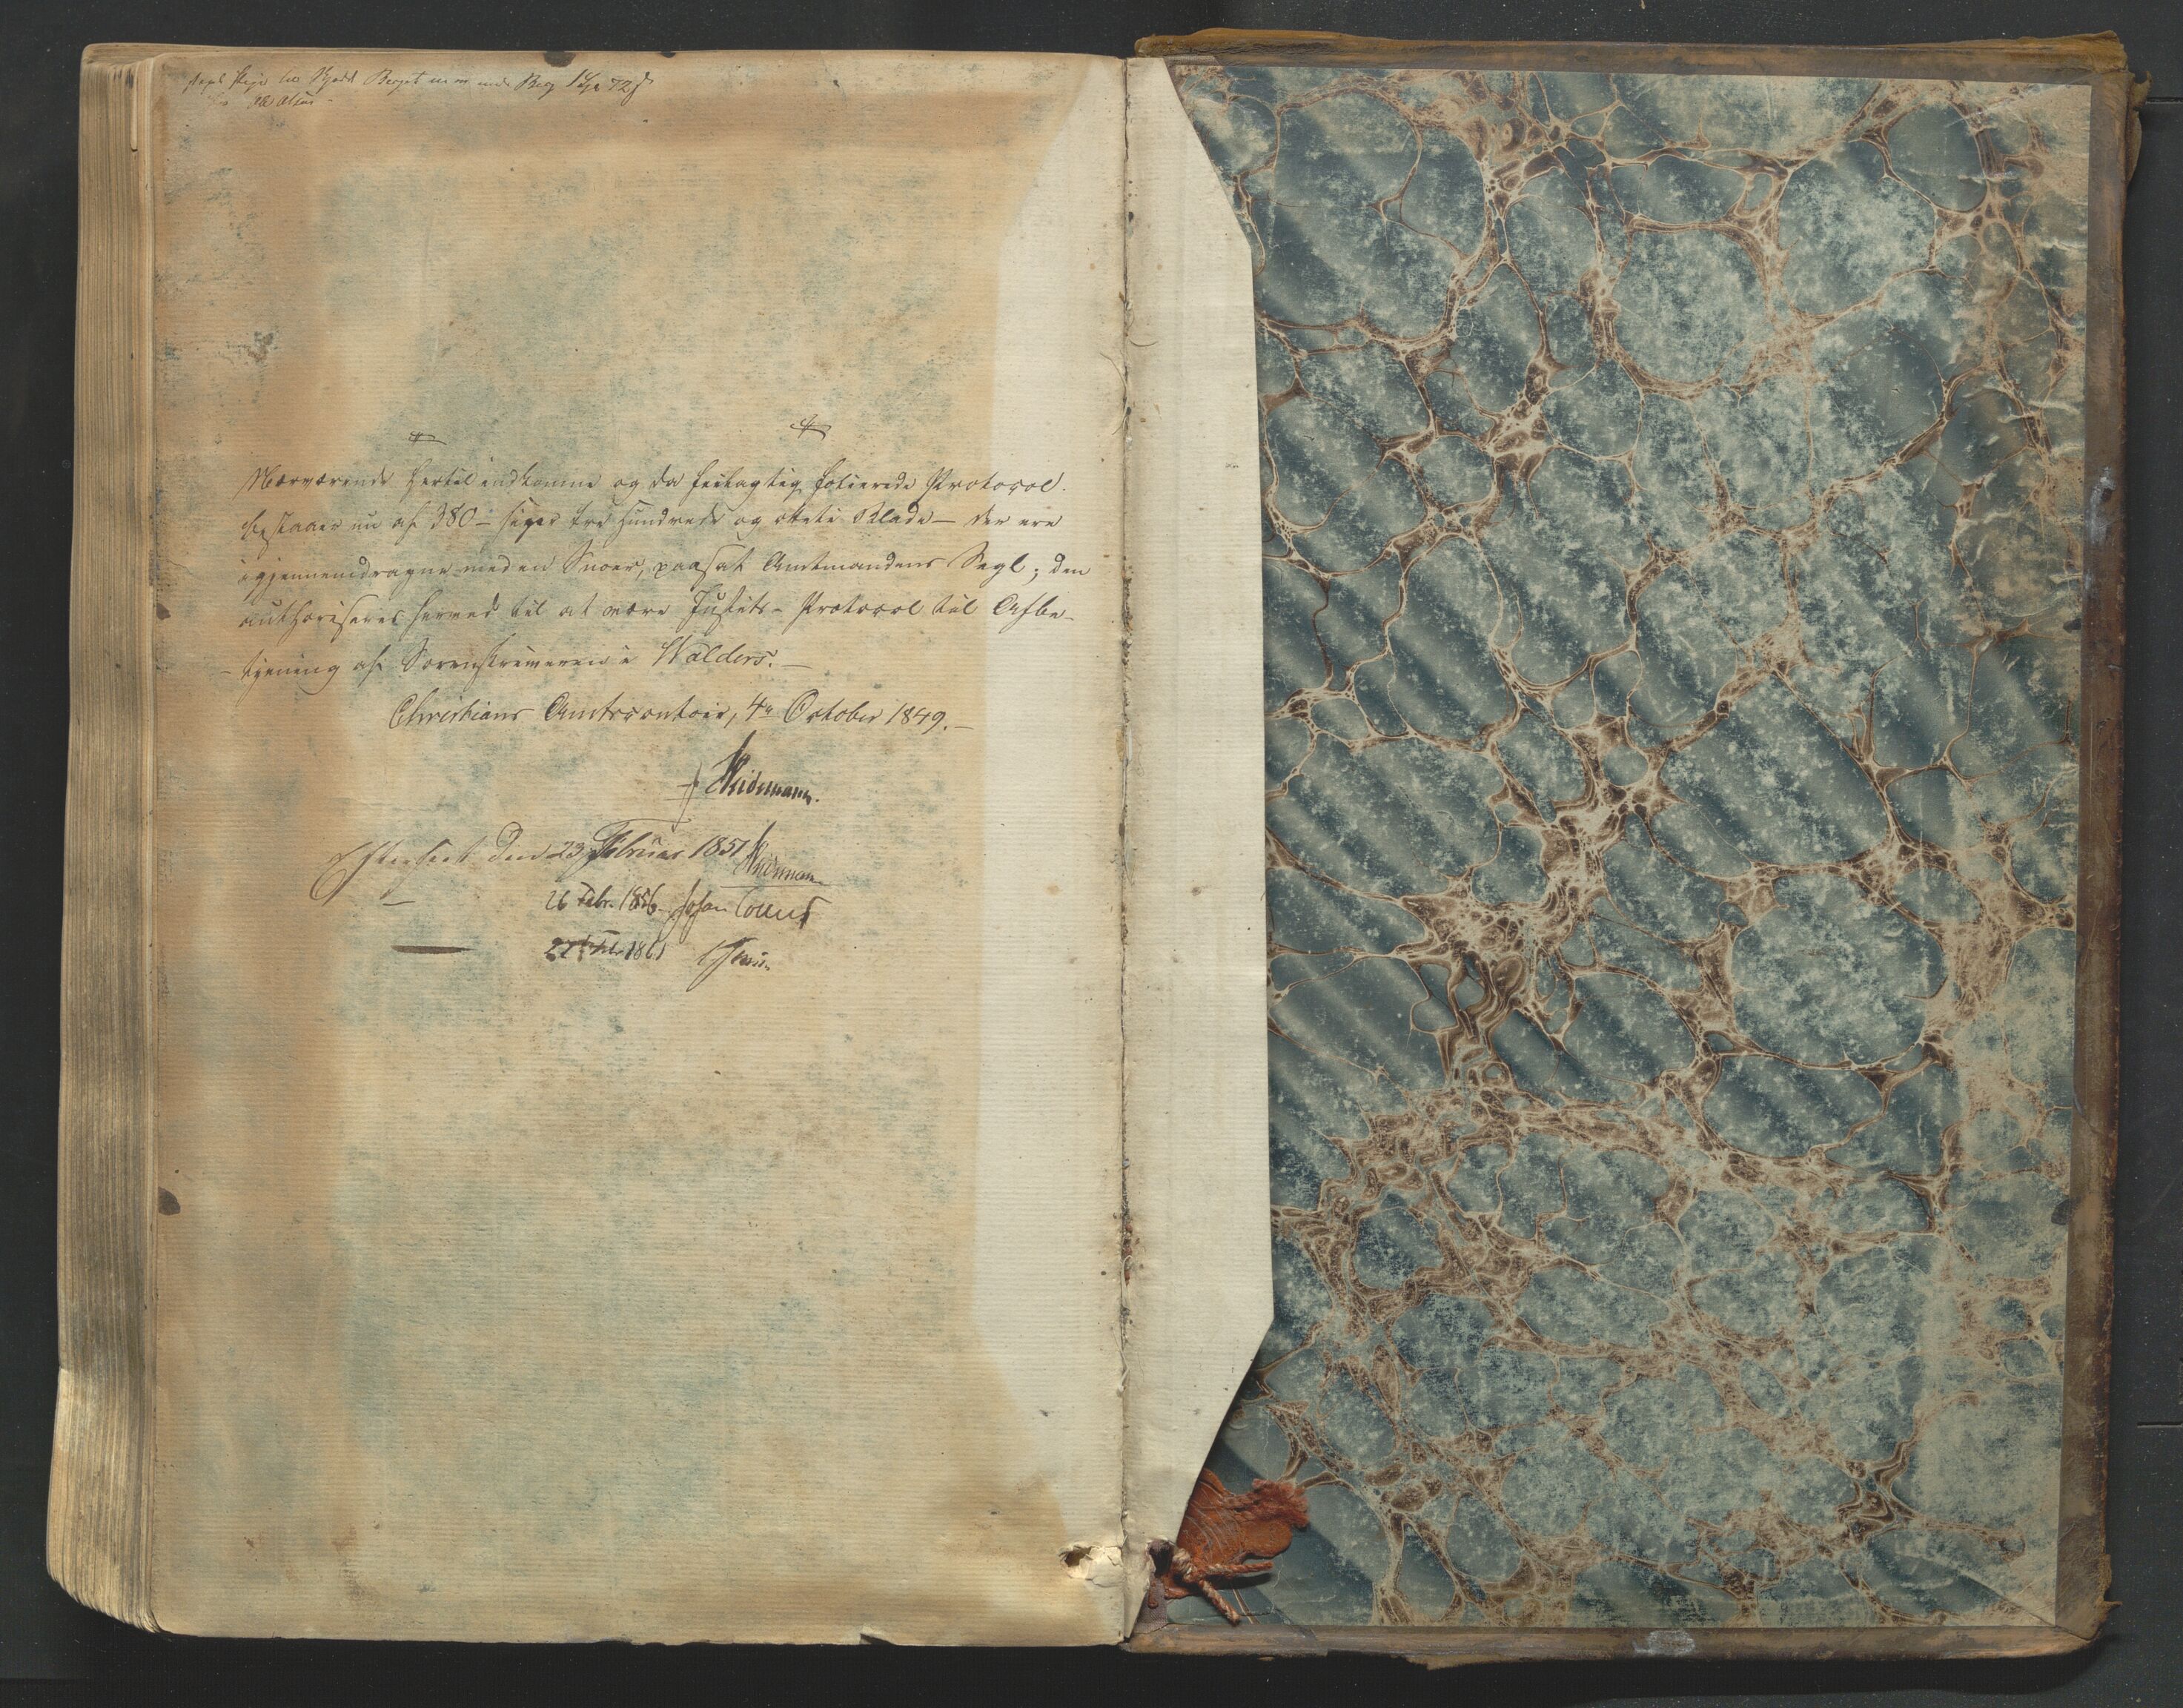 Nærværende hertil indkomne og da feilagtig folierede Protocol.
bestaaer nu af 380 – siger tre Hundrede og otteti Blade – der ere
igjennemdragne med en Snoer, paasat Amtmandens Segl; den
authoriseres herved til at være Justits-Protocol til Afbe-
- tjening af Sorenskriveren i Walders. –
Christians Amtscontoir, 4de October 1849. –
Weidemann.
Efterseet den 23 Februar 1851 Weidemann
— 26 Febr. 1856 Johan Collett
— 1861